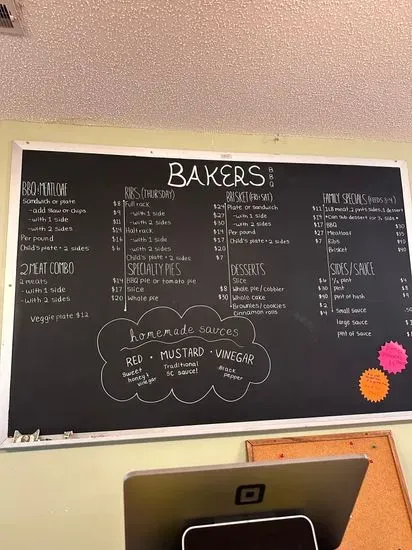 BAKERS BBQ
BBQ & MEATLOAF
Sandwich or plate $8
-add slaw or chips $9
-with 1 side $11
-with 2 sides $14
Per pound $16
Child's plate + 2 sides $6
2 MEAT COMBO
2 meats $14
-with 1 side $17
-with 2 sides $20
Veggie plate $12
RIBS (THURSDAY)
Full rack $24
-with 1 side $27
-with 2 sides $30
Half rack $14
-with 1 side $17
-with 2 sides $20
Child's plate + 2 sides $7
SPECIALTY PIES
BBQ pie or tomato pie
Slice $8
Whole pie $30
BRISKET (FRI & SAT)
Plate or sandwich $11
-with 1 side $14
-with 2 sides $17
Per pound $27
Child's plate + 2 sides $7
DESSERTS
Slice
Whole pie/cobbler
Whole cake
Brownies/cookies
Cinnamon rolls
FAMILY SPECIALS (FEEDS 3-4)
1 LB meat, 2 pints sides, 1 dessert
*Can sub dessert for ½ side*
BBQ $30
Meatloaf $35
Ribs $40
Brisket $40
SIDES/SAUCE
½ pint
pint
pint of hash
Small sauce
large sauce
pint of sauce
homemade sauces
RED · MUSTARD · VINEGAR
Sweet honey & vinegar
Traditional SC sauce!
Black pepper